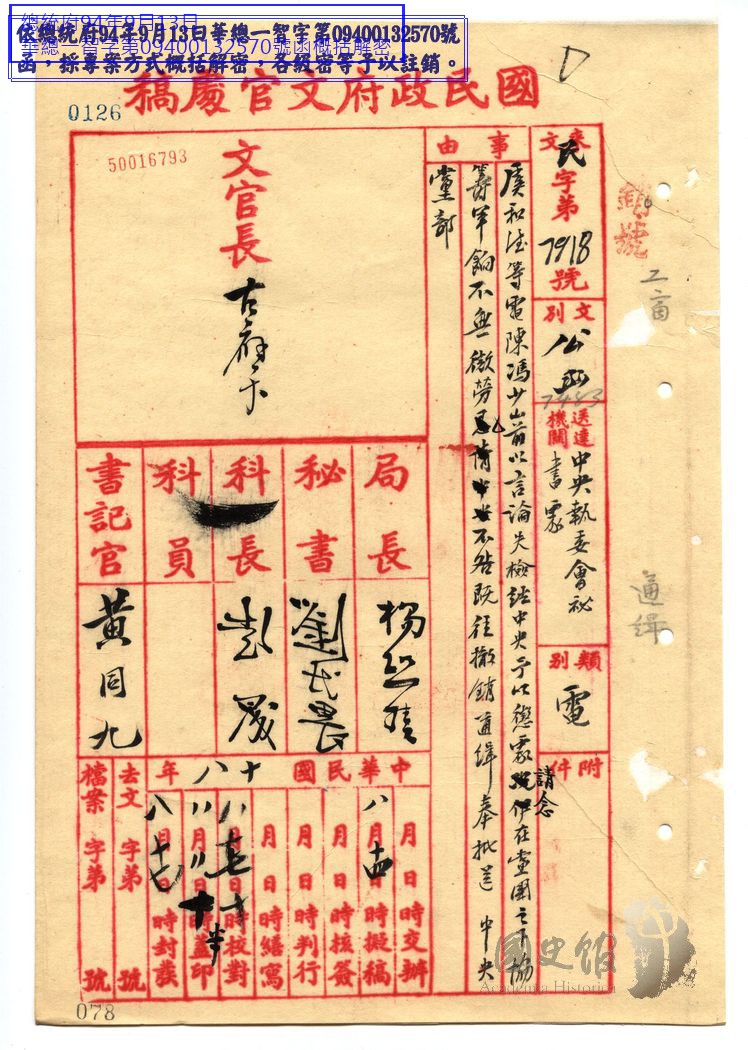 總統府94年9月13日
華總一智字第09400132570號函概括解密
依總統府94年9月13日華總一智字第09400132570號
函，採專案方式概括解密，各級密等予以註銷。
0126
國民政府文官處稿
50016793
來文 民字第7918號
文別 公函
7483
送達機關 中央執委會秘書處
類別 電
附件
事由
虞和德等電陳馮少山前以言論失檢經中央予以懲處請念伊在黨團之下協
籌軍餉不無微勞 不咎既往撤銷通緝奉批送中央
黨部
文官長 古應芬
局長 楊熙績
秘書 劉民畏
科長 彭晟
科員
書記官 黃同九
中華民國十八年
月日時交辦
八月十四日時擬稿
月日時核簽
月日時判行
月日時繕寫
月日時校對
月日時蓋印
八月十七日時封發
去文 字第 號
檔案 字第 號
銷號
通緝
078
國史館
Academia Historica